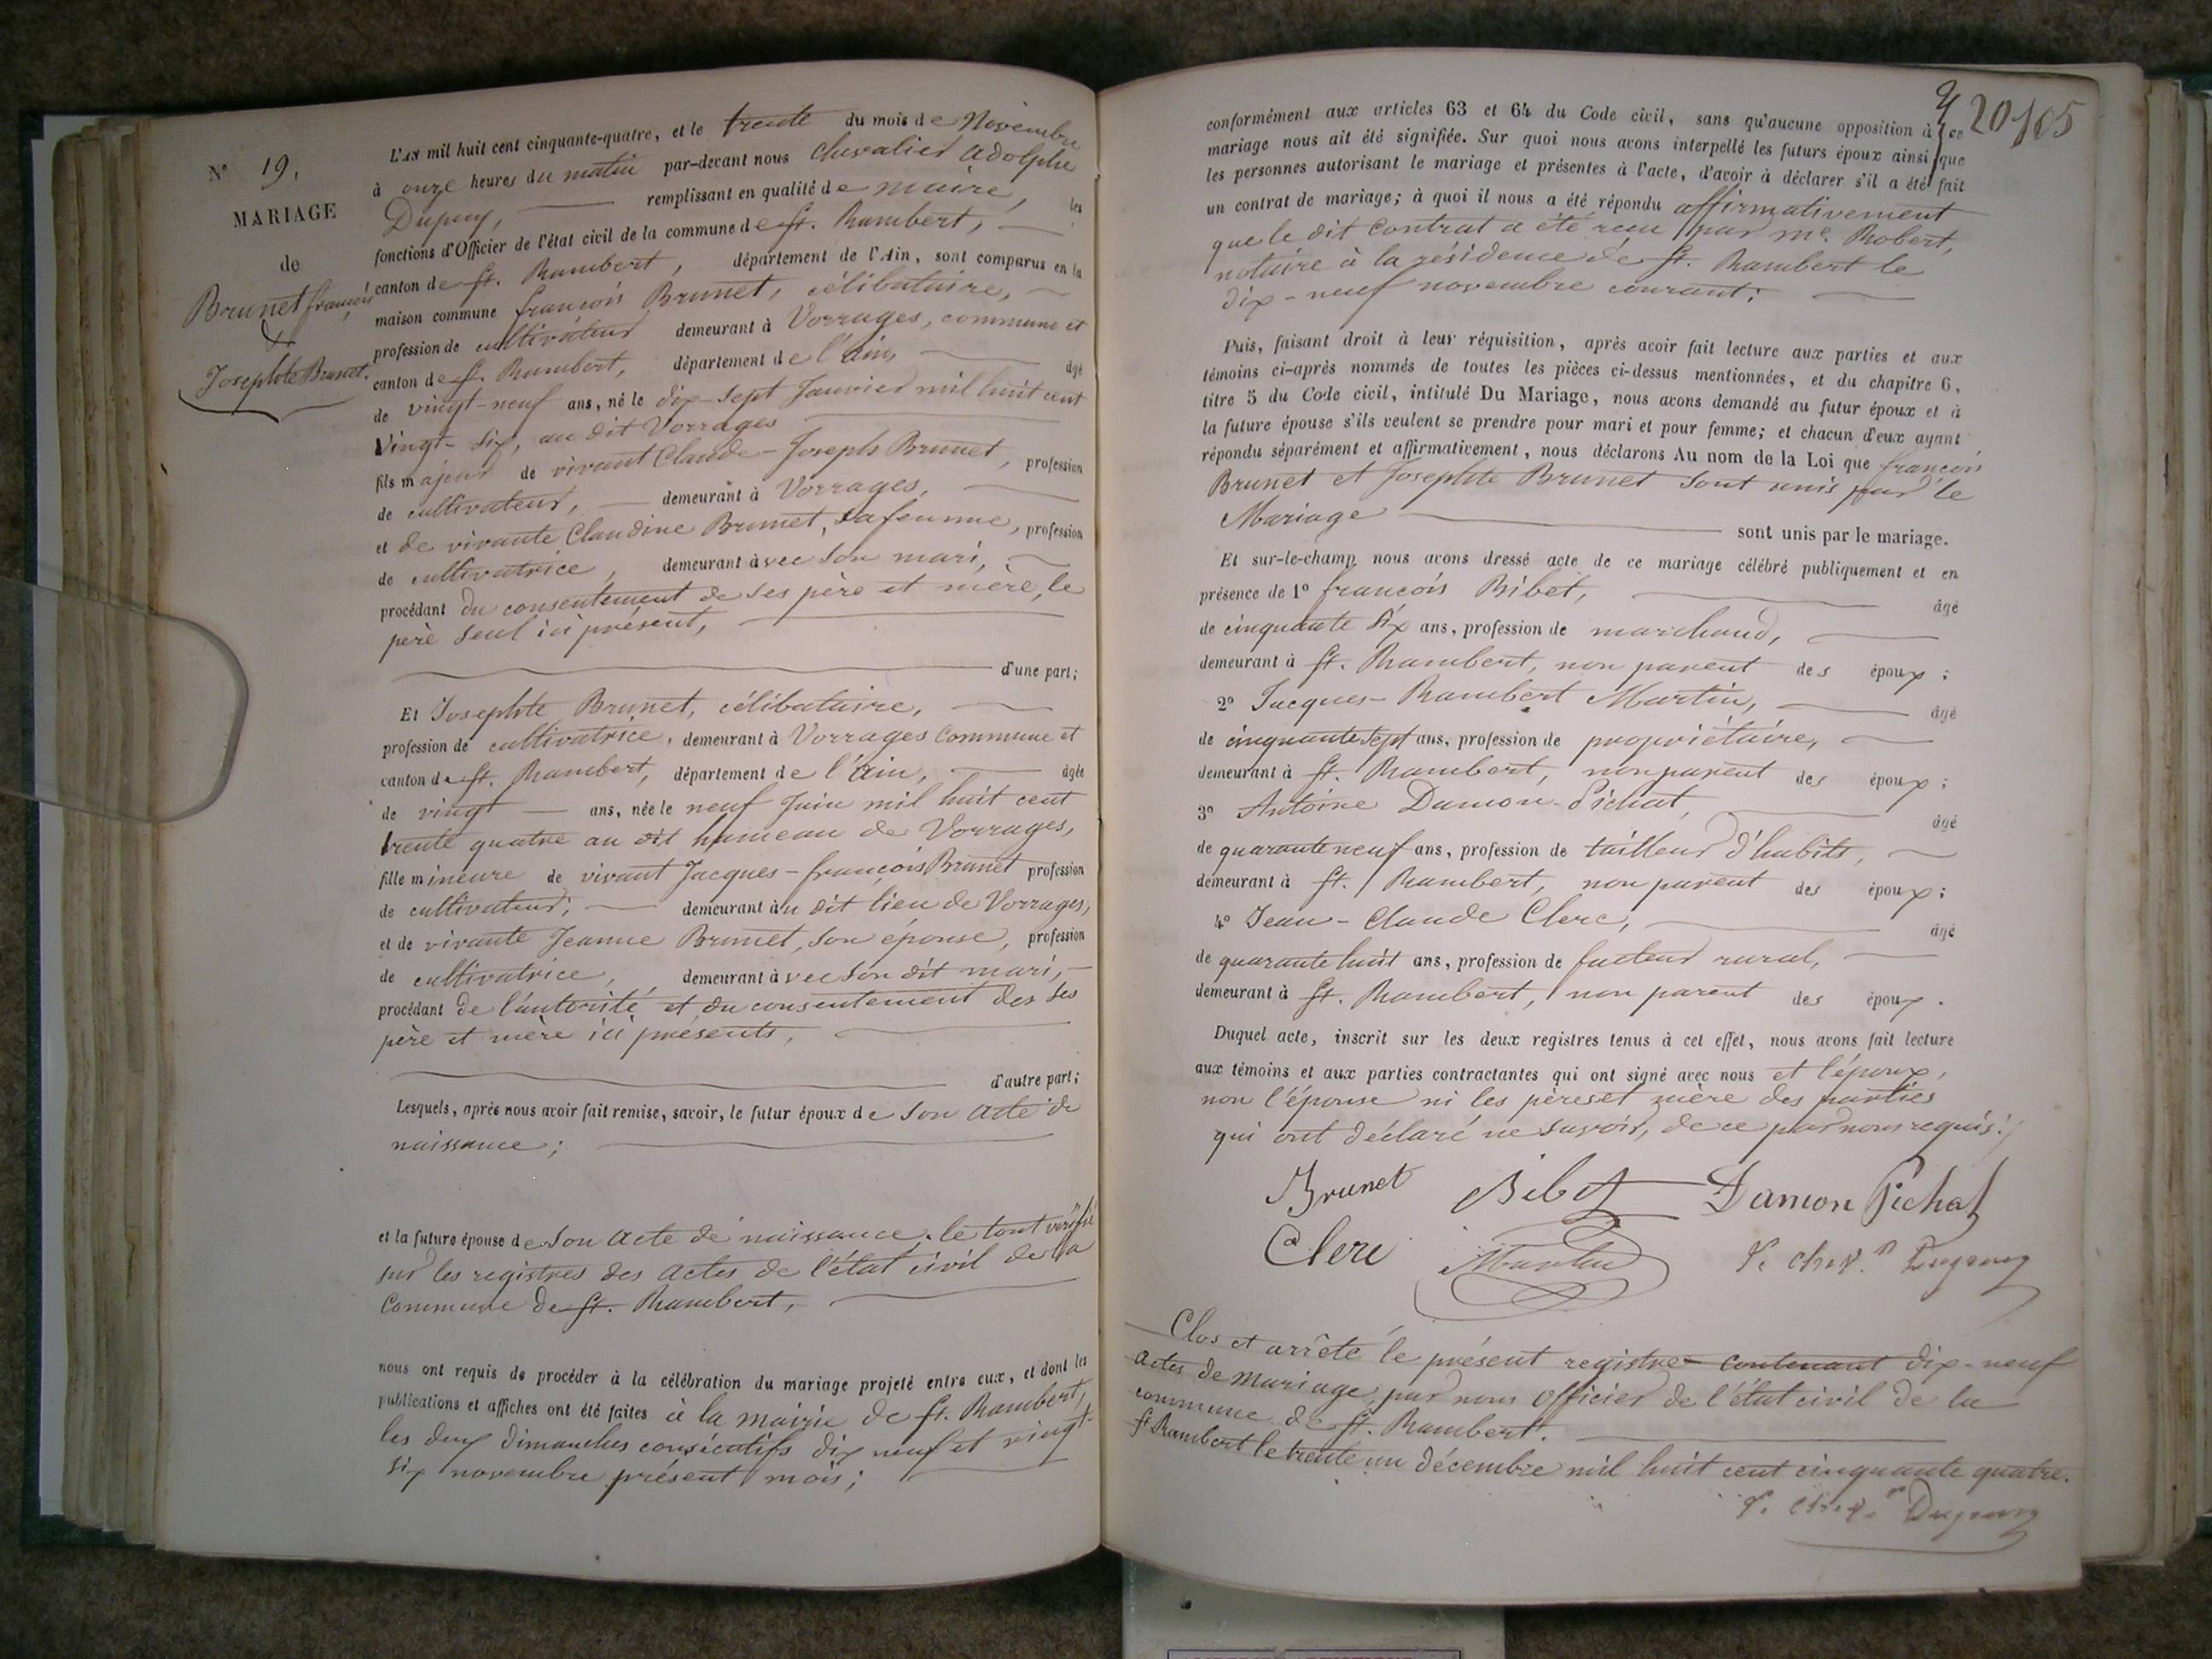 N° 19.
MARIAGE
de
Brunet françois
&
Josephte Brunet.
L'AN mil huit cent cinquante-quatre, et le trente du mois de Novembre
à onze heures du matin par-devant nous Chevalier Adolphe
Dupuy, remplissant en qualité de maire, les
fonctions d'Officier de l'état civil de la commune de St. Rambert,
canton de St. Rambert, département de l'Ain, sont comparus en la
maison commune françois Brunet, célibataire,
profession de cultivateur demeurant à Vorrages, commune et
canton de St. Rambert, département de l'Ain, âgé
de vingt-neuf ans, né le dix-sept Janvier mil huit cent
vingt-six, au dit Vorrages
fils majeur de vivant Claude-Joseph Brunet, profession
de cultivateur, demeurant à Vorrages,
et de vivante Claudine Brunet, sa femme, profession
de cultivatrice, demeurant avec son mari,
procédant du consentement de ses père et mère, le
père seul ici présent,
d'une part;
Et Josephte Brunet, célibataire,
profession de cultivatrice, demeurant à Vorrages commune et
canton de St. Rambert, département de l'Ain, âgée
de vingt ans, née le neuf Juin mil huit cent
trente quatre au dit hameau de Vorrages,
fille mineure de vivant Jacques-françois Brunet profession
de cultivateur, demeurant au dit lieu de Vorrages,
et de vivante Jeanne Brunet, son épouse, profession
de cultivatrice, demeurant avec son dit mari,
procédant de l'autorité et du consentement des ses
père et mère ici présents,
d'autre part;
Lesquels, après nous avoir fait remise, savoir, le futur époux de son acte de
naissance;
et la future épouse de son acte de naissance. le tout vérifié
sur les registres des actes de l'état civil de la
commune de St. Rambert,
nous ont requis de procéder à la célébration du mariage projeté entre eux, et dont les
publications et affiches ont été faites à la mairie de St. Rambert,
les deux dimanches consécutifs dix neuf et vingt-
six novembre présent mois;
20 105
conformément aux articles 63 et 64 du Code civil, sans qu'aucune opposition à ce
mariage nous ait été signifiée. Sur quoi nous avons interpellé les futurs époux ainsi que
les personnes autorisant le mariage et présentes à l'acte, d'avoir à déclarer s'il a été fait
un contrat de mariage; à quoi il nous a été répondu affirmativement
que le dit contrat a été reçu par me. Robert,
notaire à la résidence de St. Rambert le
dix-neuf novembre courant;
Puis, faisant droit à leur réquisition, après avoir fait lecture aux parties et aux
témoins ci-après nommés de toutes les pièces ci-dessus mentionnées, et du chapitre 6,
titre 5 du Code civil, intitulé Du Mariage, nous avons demandé au futur époux et à
la future épouse s'ils veulent se prendre pour mari et pour femme; et chacun d'eux ayant
répondu séparément et affirmativement, nous déclarons Au nom de la Loi que françois
Brunet et Josephte Brunet sont unis par le
Mariage sont unis par le mariage.
Et sur-le-champ nous avons dressé acte de ce mariage célébré publiquement et en
présence de 1° françois Bibet, âgé
de cinquante six ans, profession de marchand,
demeurant à St. Rambert, non parent des époux;
2° Jacques-Rambert Martin, âgé
de cinquante sept ans, profession de propriétaire,
demeurant à St. Rambert, non parent des époux;
3° Antoine Damon-Pichat, âgé
de quarante neuf ans, profession de tailleur d'habits,
demeurant à St. Rambert, non parent des époux;
4° Jean-Claude Clerc, âgé
de quarante huit ans, profession de facteur rural,
demeurant à St. Rambert, non parent des époux.
Duquel acte, inscrit sur les deux registres tenus à cet effet, nous avons fait lecture
aux témoins et aux parties contractantes qui ont signé avec nous et l'époux,
non l'épouse ni les pères et mère des parties
qui ont déclaré ne savoir, de ce par nous requis.
Brunet Bibet Damon Pichat
Clerc Martin Dupuy
Clos et arrêté le présent registre contenant dix-neuf
actes de mariage, par nous officier de l'état civil de la
commune de St. Rambert.
St Rambert le trente un décembre mil huit cent cinquante quatre.
Dupuy